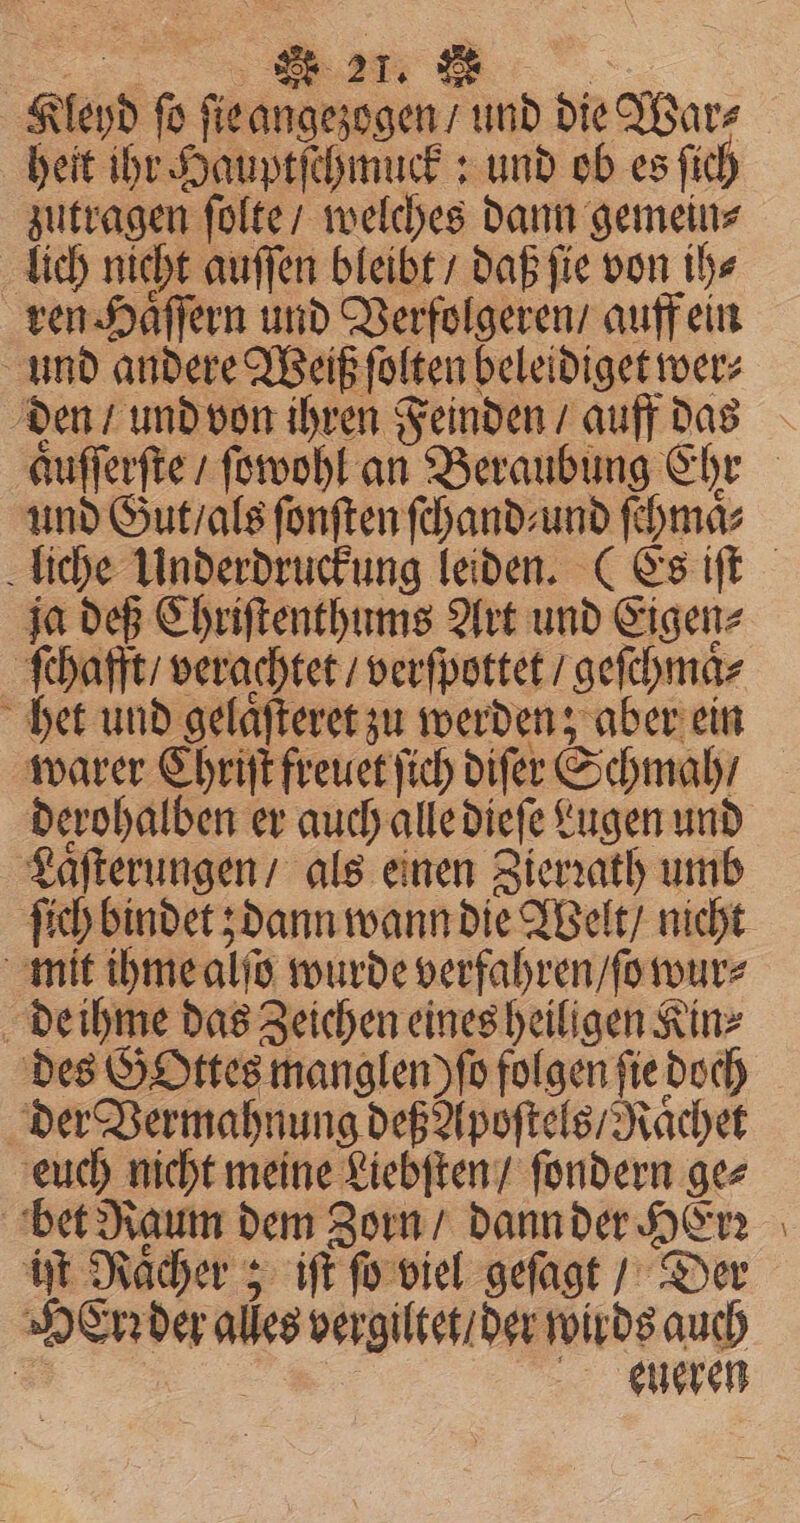 ❁ 21. ❁
Kleyd ſo ſie angezogen / und die War⸗
heit ihr Hauptſchmuck : und ob es ſich
zutragen ſolte / welches dann gemein⸗
lich nicht auſſen bleibt / daß ſie von ih⸗
ren Haͤſſern und Verfolgeren / auff ein
und andere Weiß ſolten beleidiget wer⸗
den / und von ihren Feinden / auff das
aͤuſſerſte / ſowohl an Beraubung Ehr
und Gut / als ſonſten ſchand⸗und ſchmaͤ⸗
liche Underdruckung leiden. ( Es iſt
ja deß Chriſtenthums Art und Eigen⸗
ſchafft / verachtet / verſpottet / geſchmaͤ⸗
het und gelaͤſteret zu werden; aber ein
warer Chriſt freuet ſich diſer Schmah /
derohalben er auch alle dieſe Lugen und
Laͤſterungen / als einen Zierꝛath umb
ſich bindet ; dann wann die Welt / nicht
mit ihme alſo wurde verfahren / ſo wur⸗
de ihme das Zeichen eines heiligen Kin⸗
des GOttes manglen) ſo folgen ſie doch
der Vermahnung deß Apoſtels / Raͤchet
euch nicht meine Liebſten / ſondern ge⸗
bet Raum dem Zorn / dann der HErꝛ
iſt Raͤcher ; iſt ſo viel geſagt / Der
HErꝛ der alles vergiltet / der wirds auch
eueren